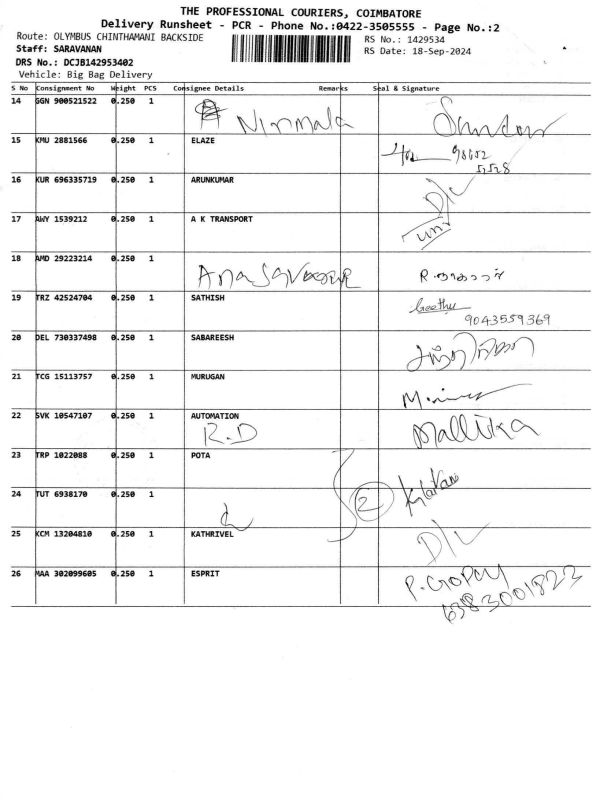 THE PROFESSIONAL COURIERS, COIMBATORE
Delivery Runsheet - PCR - Phone No.:0422-3505555 - Page No.:2
Route: OLYMBUS CHINTHAMANI BACKSIDE
RS No.: 1429534
Staff: SARAVANAN
RS Date: 18-Sep-2024
DRS No.: DCJB142953402
Vehicle: Big Bag Delivery
S No Consignment No Weight PCS Consignee Details Remarks Seal & Signature
14 GGN 900521522 0.250 1
Nirmala
15 KMU 2881566 0.250 1 ELAZE
98652
5528
16 KUR 696335719 0.250 1 ARUNKUMAR
D/L
17 AWY 1539212 0.250 1 A K TRANSPORT
18 AMD 29223214 0.250 1
19 TRZ 42524704 0.250 1 SATHISH
Geethu
9043559369
20 DEL 730337498 0.250 1 SABAREESH
21 TCG 15113757 0.250 1 MURUGAN
22 SVK 10547107 0.250 1 AUTOMATION
R.D Mallika
23 TRP 1022088 0.250 1 POTA
24 TUT 6938170 0.250 1
2
25 KCM 13204810 0.250 1 KATHRIVEL
D/L
26 MAA 302099605 0.250 1 ESPRIT
P. Gopay
6383001823